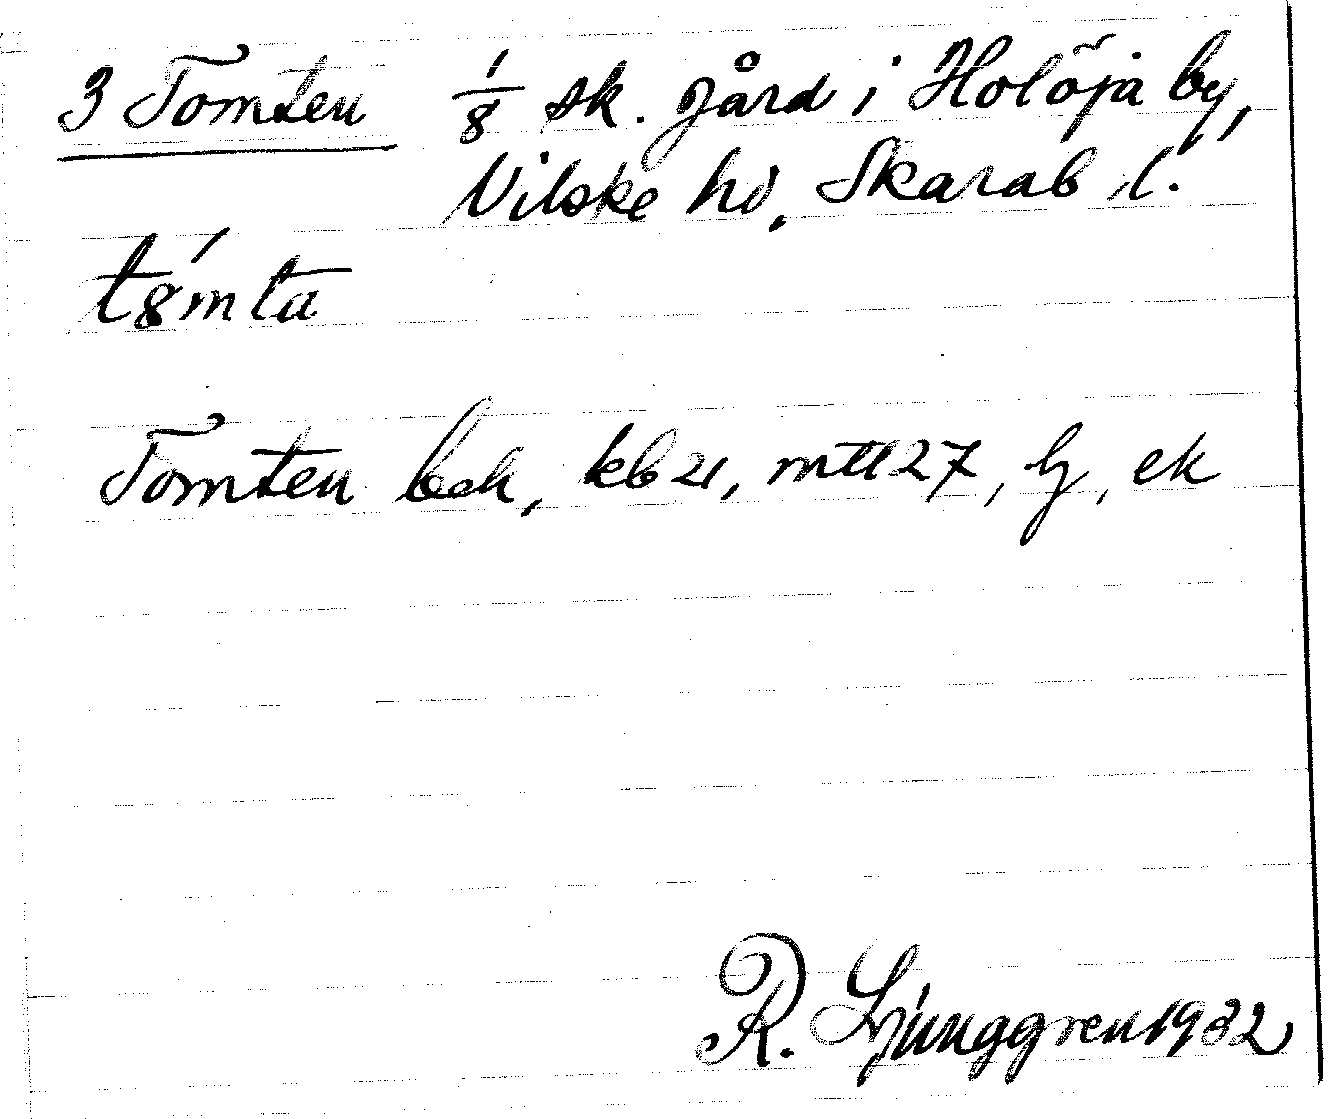 3 Tomten 1/8 sk. gård i Holöja by,
Vilske hd, Skarab. l.
t8́mta
Tomten beh, kb 21, mtl 27, lj, ek
R. Ljunggren 1932